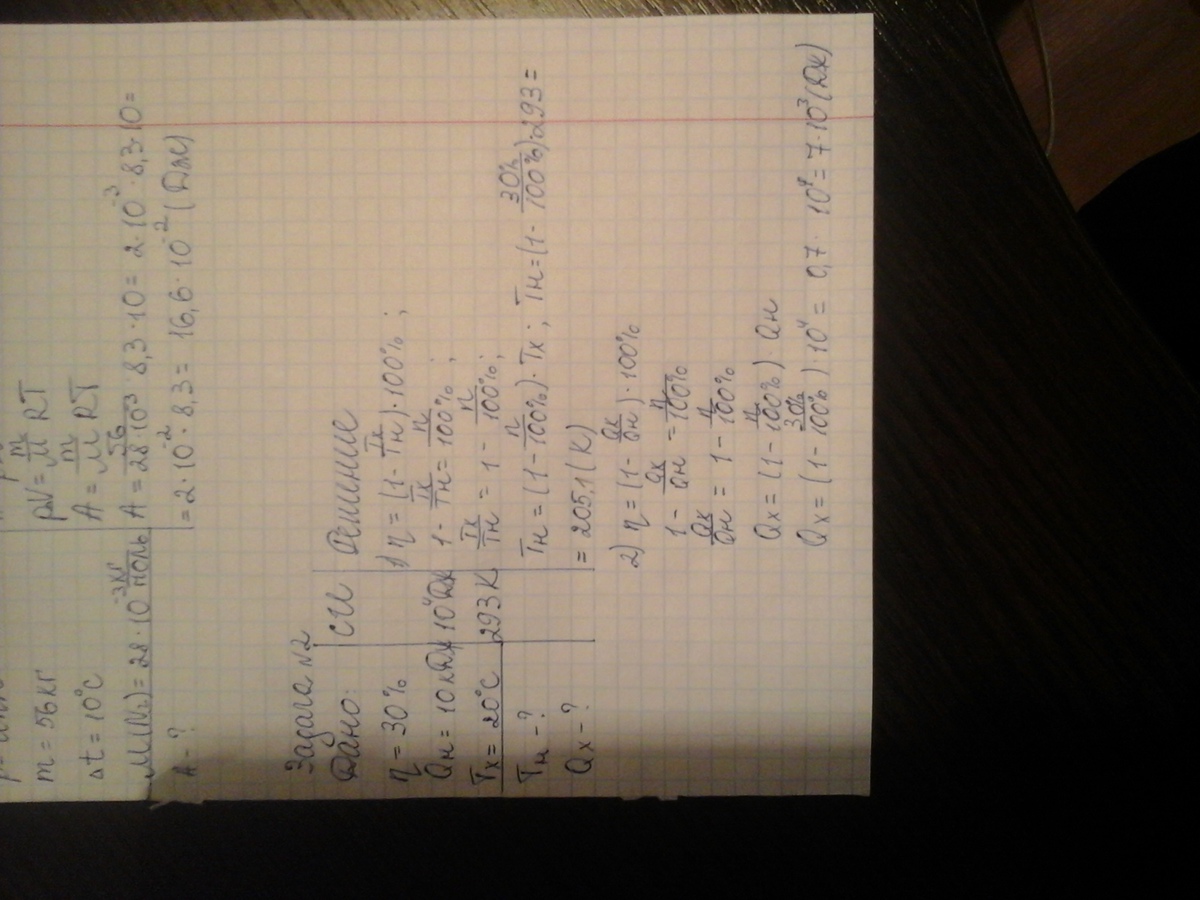 m = 56кг
Δt = 10°C
M(N₂) = 28 · 10⁻³ кг/моль
A - ?
pV = m/M RT
A = m/M RT
A = 56/28·10³ · 8,3 · 10 = 2 · 10⁻³ · 8,3 · 10 =
= 2 · 10⁻² · 8,3 = 16,6 · 10⁻² (Дж)
Задача N2
Дано:
η = 30%
Qн = 10кДж
Tх = 20°C
Tн - ?
Qх - ?
СИ
10⁴Дж
293К
Решение
1) η = (1 - Tх/Tн) · 100% ;
1 - Tх/Tн = η/100% ;
Tх/Tн = 1 - η/100% ;
Tн = (1 - η/100%) · Tх ; Tн = (1 - 30%/100%) · 293 =
= 205,1 (К)
2) η = (1 - Qх/Qн) · 100%
1 - Qх/Qн = η/100%
Qх/Qн = 1 - η/100%
Qх = (1 - η/100%) · Qн
Qх = (1 - 30%/100%) 10⁴ = 0,7 · 10⁴ = 7 · 10³ (Дж)